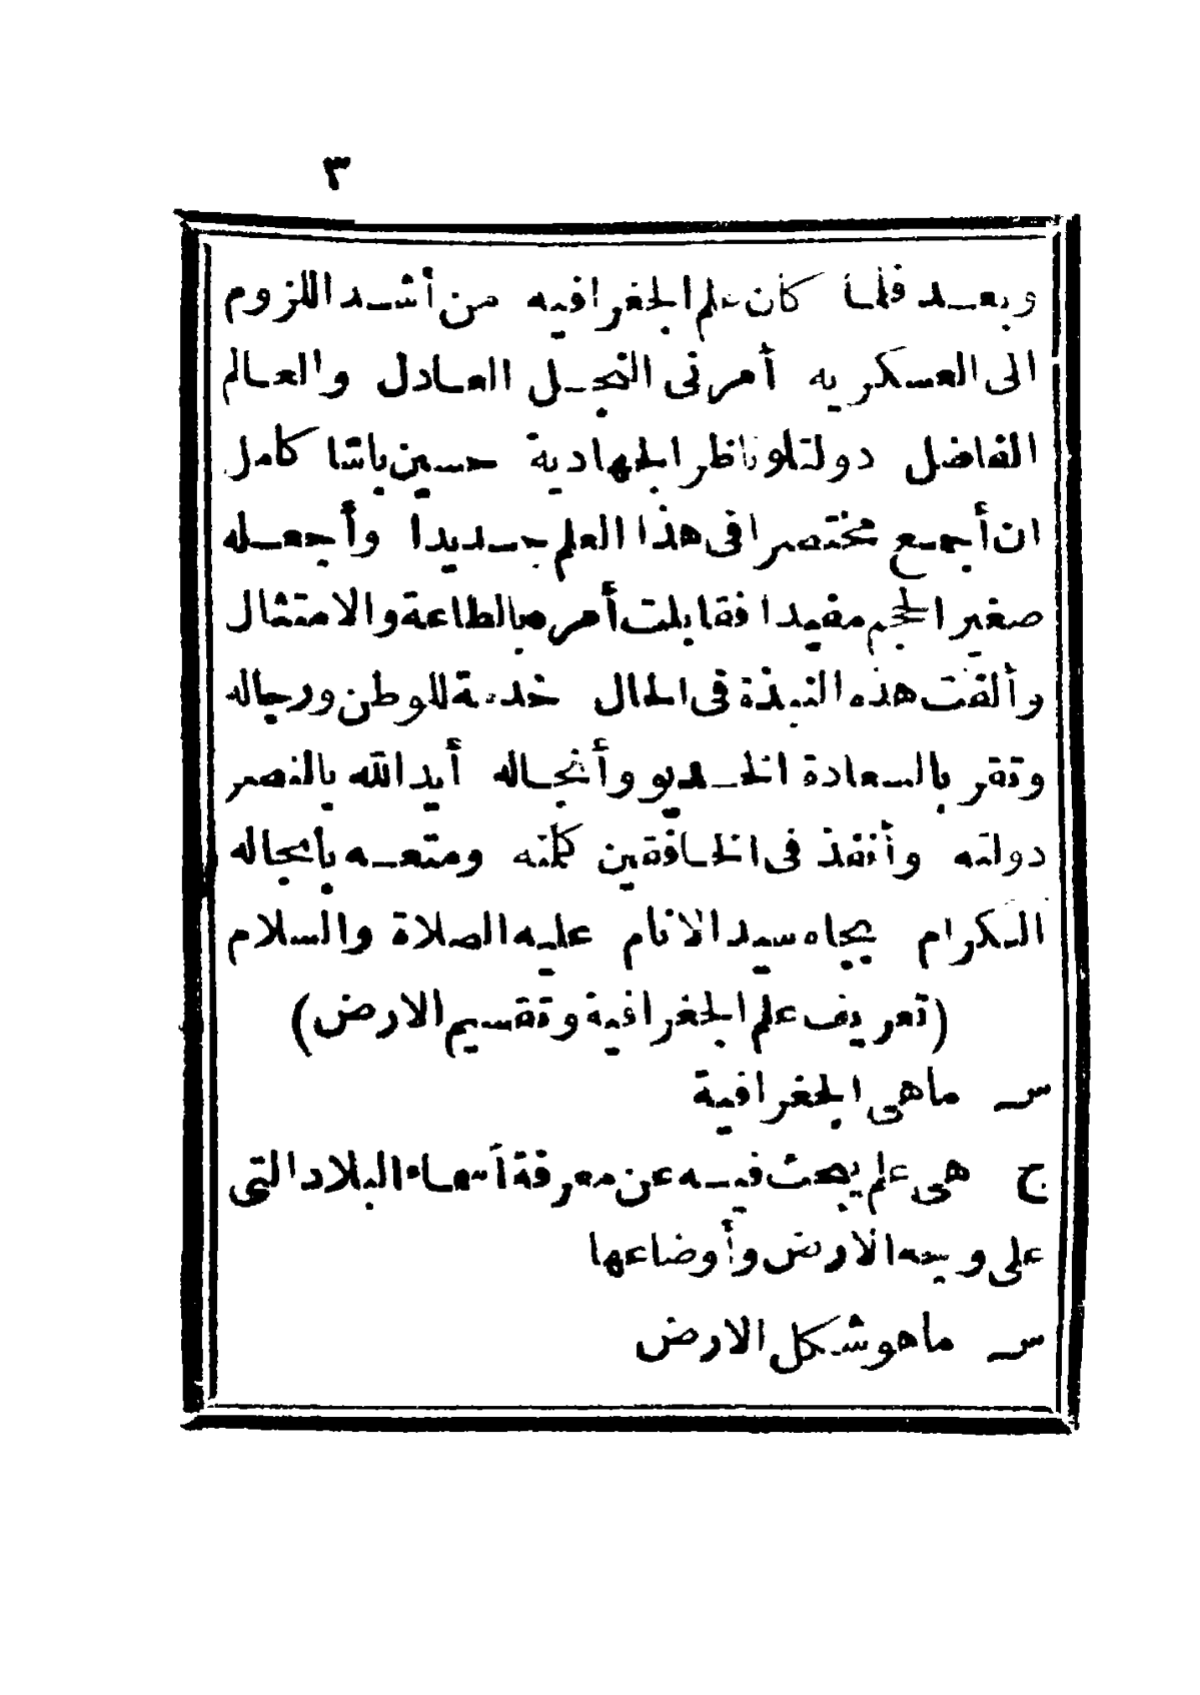 ٣
وبعد فلما كان علم الجغرافيه من أشد اللزوم
الى العسكريه أمرنى النجل العادل والعالم
الفاضل دولتلو ناظر الجهادية حسين باشا كامل
ان أجمع مختصرا فى هذا العلم جديدا وأجعله
صغير الحجم مفيدا فقابلت أمره بالطاعة والامتثال
وألفت هذه النبذة فى الحال خدمة للوطن ورجاله
وتقر بالسعادة الخديو وأنجاله أيد الله بالنصر
دولته وأنفذ فى الخافقين كلمته ومتعه بأنجاله
الكرام بجاه سيد الانام عليه الصلاة والسلام
(تعريف علم الجغرافية وتقسيم الارض)
س ماهى الجغرافية
ج هى علم يبحث فيه عن معرفة أسماء البلاد التى
على وجه الارض وأوضاعها
س ماهو شكل الارض